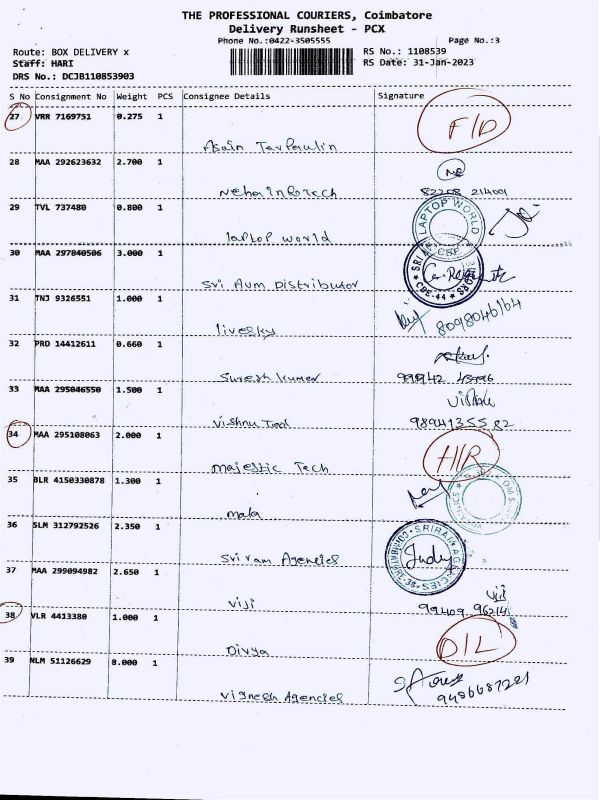 THE PROFESSIONAL COURIERS, Coimbatore
Delivery Runsheet - PCX
Phone No.:0422-3505555 Page No.:3
Route: BOX DELIVERY x RS No.: 1108539
Staff: HARI RS Date: 31-Jan-2023
DRS No.: DCJB110853903
S No Consignment No Weight PCS Consignee Details Signature
27 VRR 7169751 0.275 1 F/D
Asain Tarpaulin
28 MAA 292623632 2.700 1
Neha infotech 82208 214001
29 TVL 737480 0.800 1 LAPTOP WORLD
laptop world CBE
30 MAA 297840506 3.000 1 SRI
Sri Aum Distributor CBE-44
31 TNJ 9326551 1.000 1
livesky 8098046164
32 PRD 14412611 0.660 1
Suresh kumar 99942
33 MAA 295046550 1.500 1
Vishnu Tool 9894135582
34 MAA 295108063 2.000 1 H/R
Majestic Tech
35 BLR 4150330878 1.300 1
mala
36 SLM 312792526 2.350 1 SRIRAM AGENCIES
Sriram Agencies Judy
37 MAA 299094982 2.650 1 Viji
Viji 99409 96214
38 VLR 4413380 1.000 1 D/L
Divya
39 NLM 51126629 8.000 1
Vignesh Agencies 9486687221